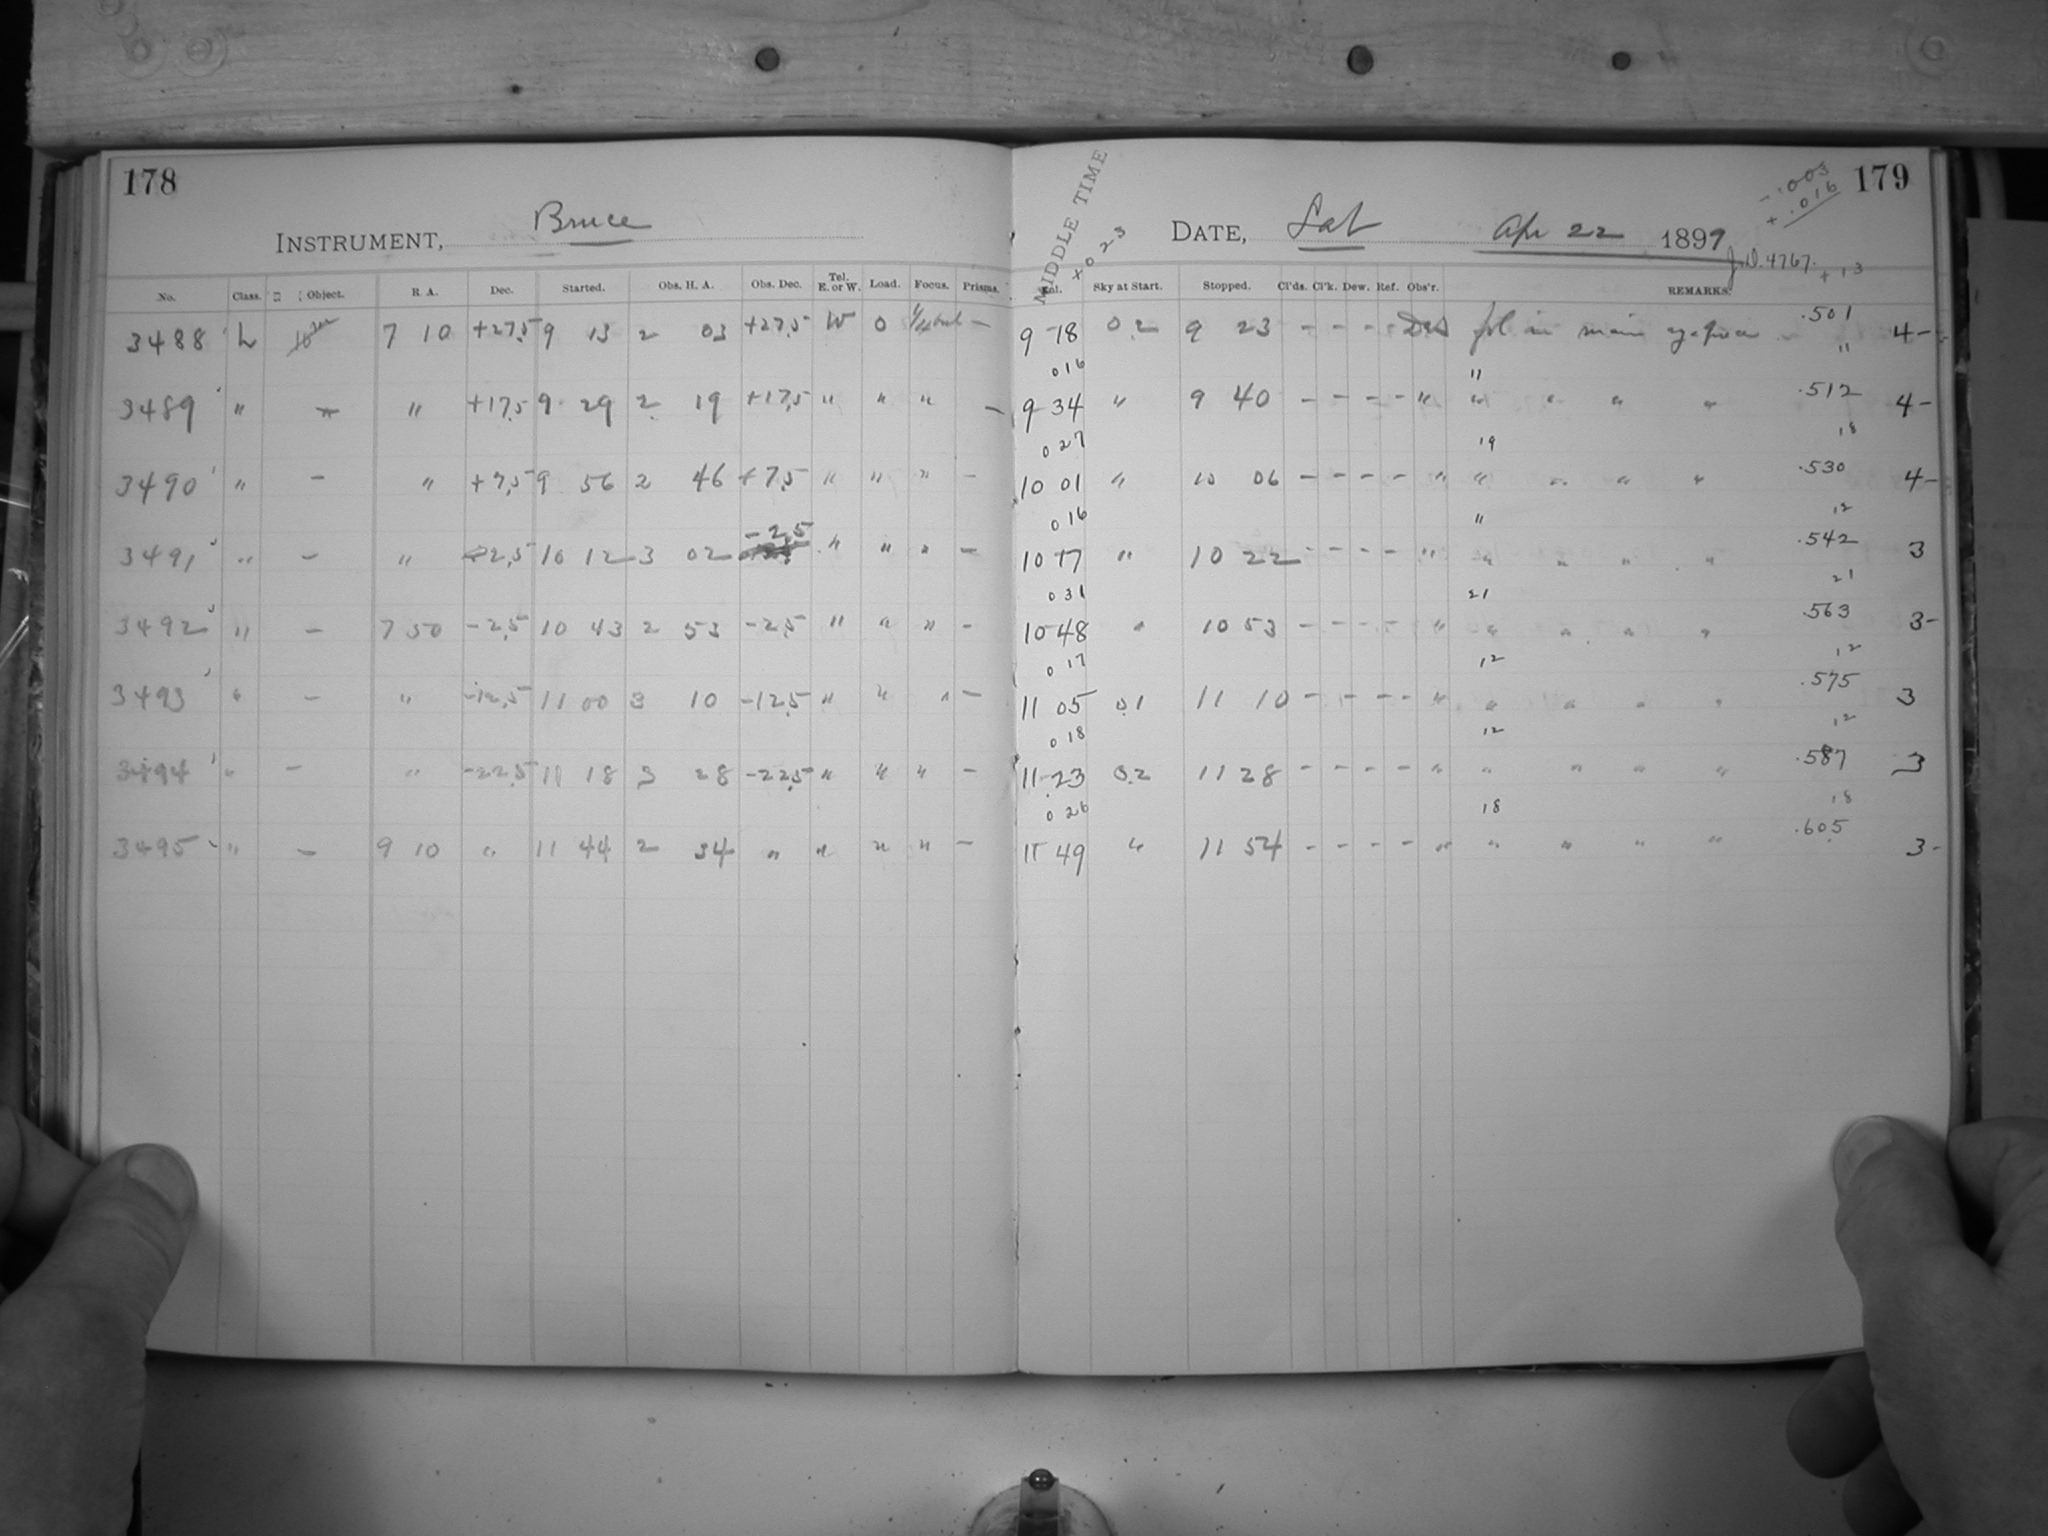 178
INSTRUMENT, Bruce
No. Class. Object. R. A. Dec. Started. Obs. H. A. Obs. Dec. Tel. E. or W. Load. Focus. Prisms.
3488 L 7 10 +27,5 9 13 2 03 +27,5 W 0 —
3489 " — " +17,5 9 29 2 19 +17,5 " " " —
3490 " — " +7,5 9 56 2 46 +7,5 " " " —
3491 " — " -2,5 10 12 3 02 -2,5 " " " —
3492 " — 7 50 -2,5 10 43 2 53 -2,5 " " " —
3493 " — " -12,5 11 00 3 10 -12,5 " " " —
3494 " — " -22,5 11 18 3 28 -22,5 " " " —
3495 " — 9 10 " 11 44 2 34 " " " " —
179
-.003
+.016
MIDDLE TIME
+023
DATE, Sat Apr 22 1899
J.D. 4767. +13
Sky at Start. Stopped. Cl'ds. Cl'k. Dew. Ref. Obs'r. REMARKS.
9 18 0.2 9 23 - - - - fol in main eye-piece .501 4-
016 " "
9 34 " 9 40 - - - - " " " " " .512 4-
027 19 18
10 01 " 10 06 - - - - " " " " " .530 4-
016 " 12
10 17 " 10 22 - - - - " " " " " .542 3
031 21 21
10 48 " 10 53 - - - - " " " " " .563 3-
017 12 12
11 05 0.1 11 10 - - - - " " " " " .575 3
018 12 12
11 23 0.2 11 28 - - - - " " " " " .587 3
026 18 18
11 49 " 11 54 - - - - " " " " " .605 3-